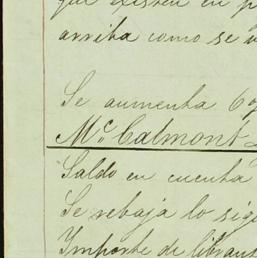 que existen en p
arriba como se v
Se aumenta 6 0/
Mc. Calmont
Saldo en cuenta
Se rebaja lo sig
Importe de librans